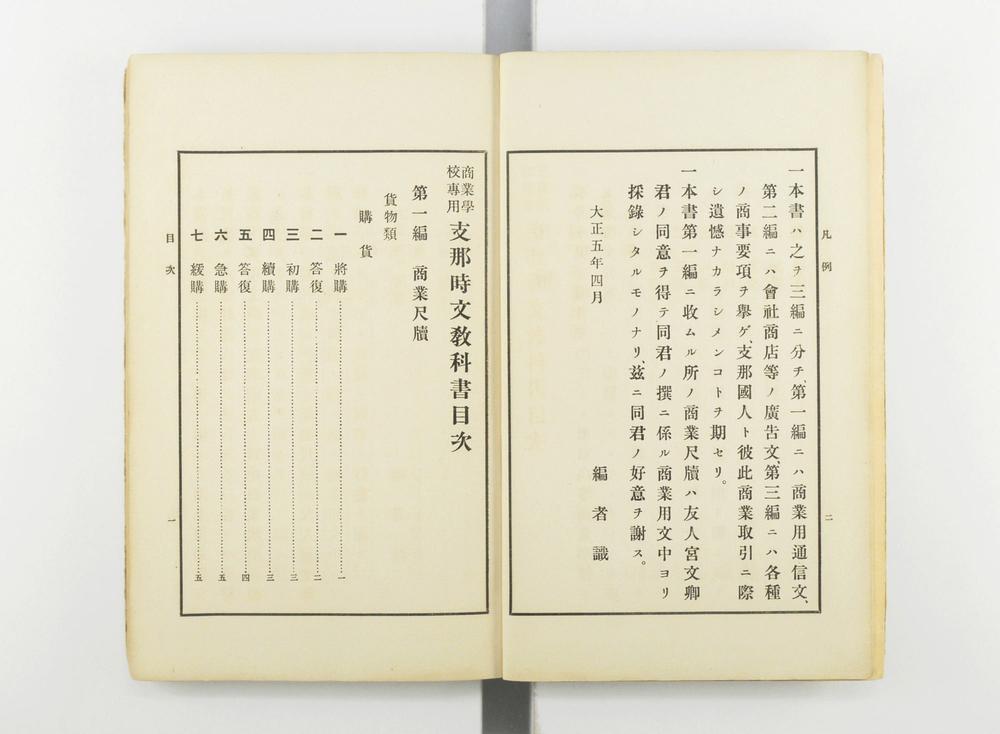 凡例
一本書ハ之ヲ三編ニ分チ、第一編ニハ商業用通信文、
第二編ニハ會社商店等ノ廣吿文、第三編ニハ各種
ノ商事要項ヲ擧ゲ、支那國人ト彼此商業取引ニ際
シ遺憾ナカラシメンコトヲ期セリ。
一本書第一編ニ收ムル所ノ商業尺牘ハ友人宮文卿
君ノ同意ヲ得テ同君ノ撰ニ係ル商業用文中ヨリ
採錄シタルモノナリ、玆ニ同君ノ好意ヲ謝ス。
大正五年四月
編者識
二
商業學校專用 支那時文敎科書目次
第一編 商業尺牘
貨物類
購貨
一 將購……一
二 答復……二
三 初購……三
四 續購……三
五 答復……四
六 急購……五
七 緩購……五
目次
一